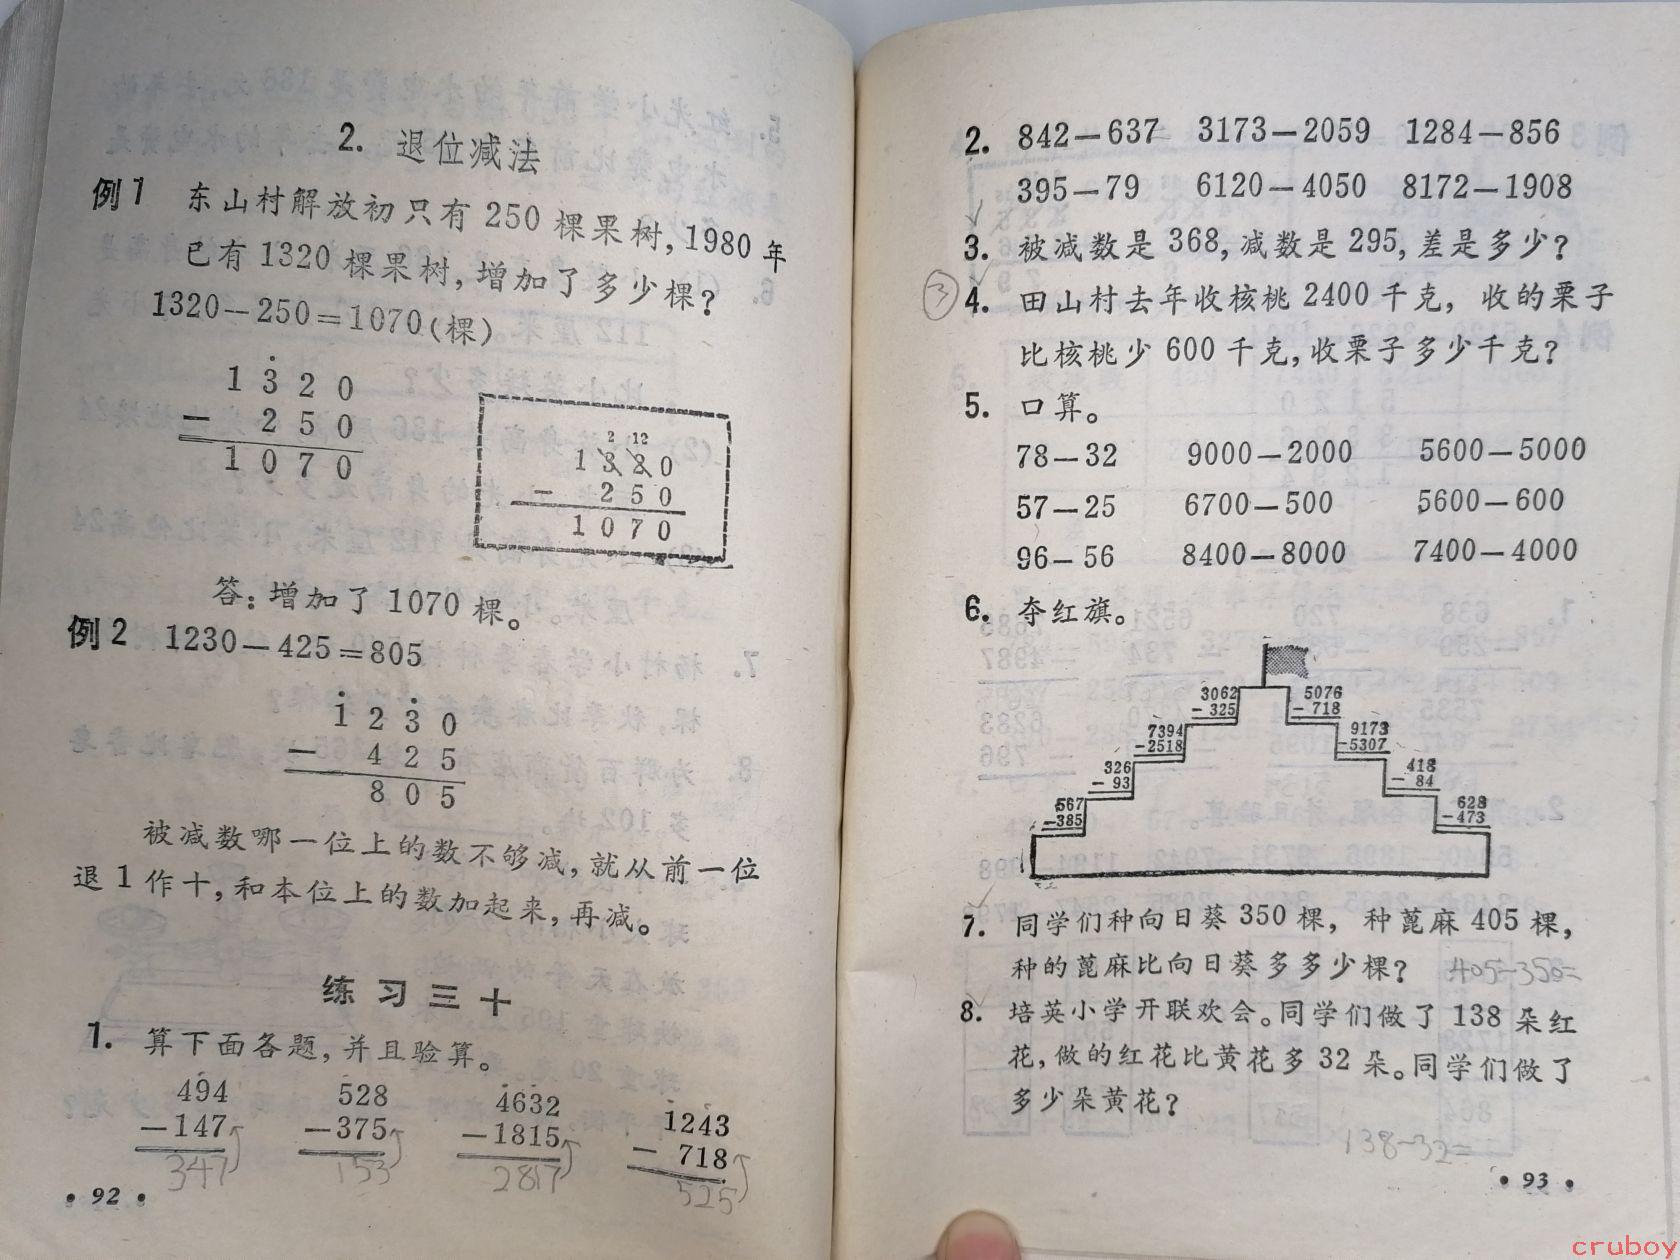 2. 退位减法
例1 东山村解放初只有 250 棵果树, 1980 年
已有 1320 棵果树, 增加了多少棵?
1320-250=1070(棵)
1320
- 250
1070
2 12
1320
- 250
1070
答: 增加了 1070 棵。
例2 1230-425=805
1230
- 425
805
被减数哪一位上的数不够减, 就从前一位
退 1 作十, 和本位上的数加起来, 再减。
练习三十
1. 算下面各题, 并且验算。
494 528 4632 1243
-147 -375 -1815 - 718
347 153 2817 525
• 92 •
2. 842-637 3173-2059 1284-856
395-79 6120-4050 8172-1908
3. 被减数是 368, 减数是 295, 差是多少?
③ 4. 田山村去年收核桃 2400 千克, 收的栗子
比核桃少 600 千克, 收栗子多少千克?
5. 口算。
78-32 9000-2000 5600-5000
57-25 6700-500 5600-600
96-56 8400-8000 7400-4000
6. 夺红旗。
3062 5076
- 325 - 718
7394 9173
-2518 -5307
326 418
- 93 - 84
567 628
-385 -473
7. 同学们种向日葵 350 棵, 种蓖麻 405 棵,
种的蓖麻比向日葵多多少棵? 405-350=
8. 培英小学开联欢会。同学们做了 138 朵红
花, 做的红花比黄花多 32 朵。同学们做了
多少朵黄花?
138-32=
• 93 •
cruboy